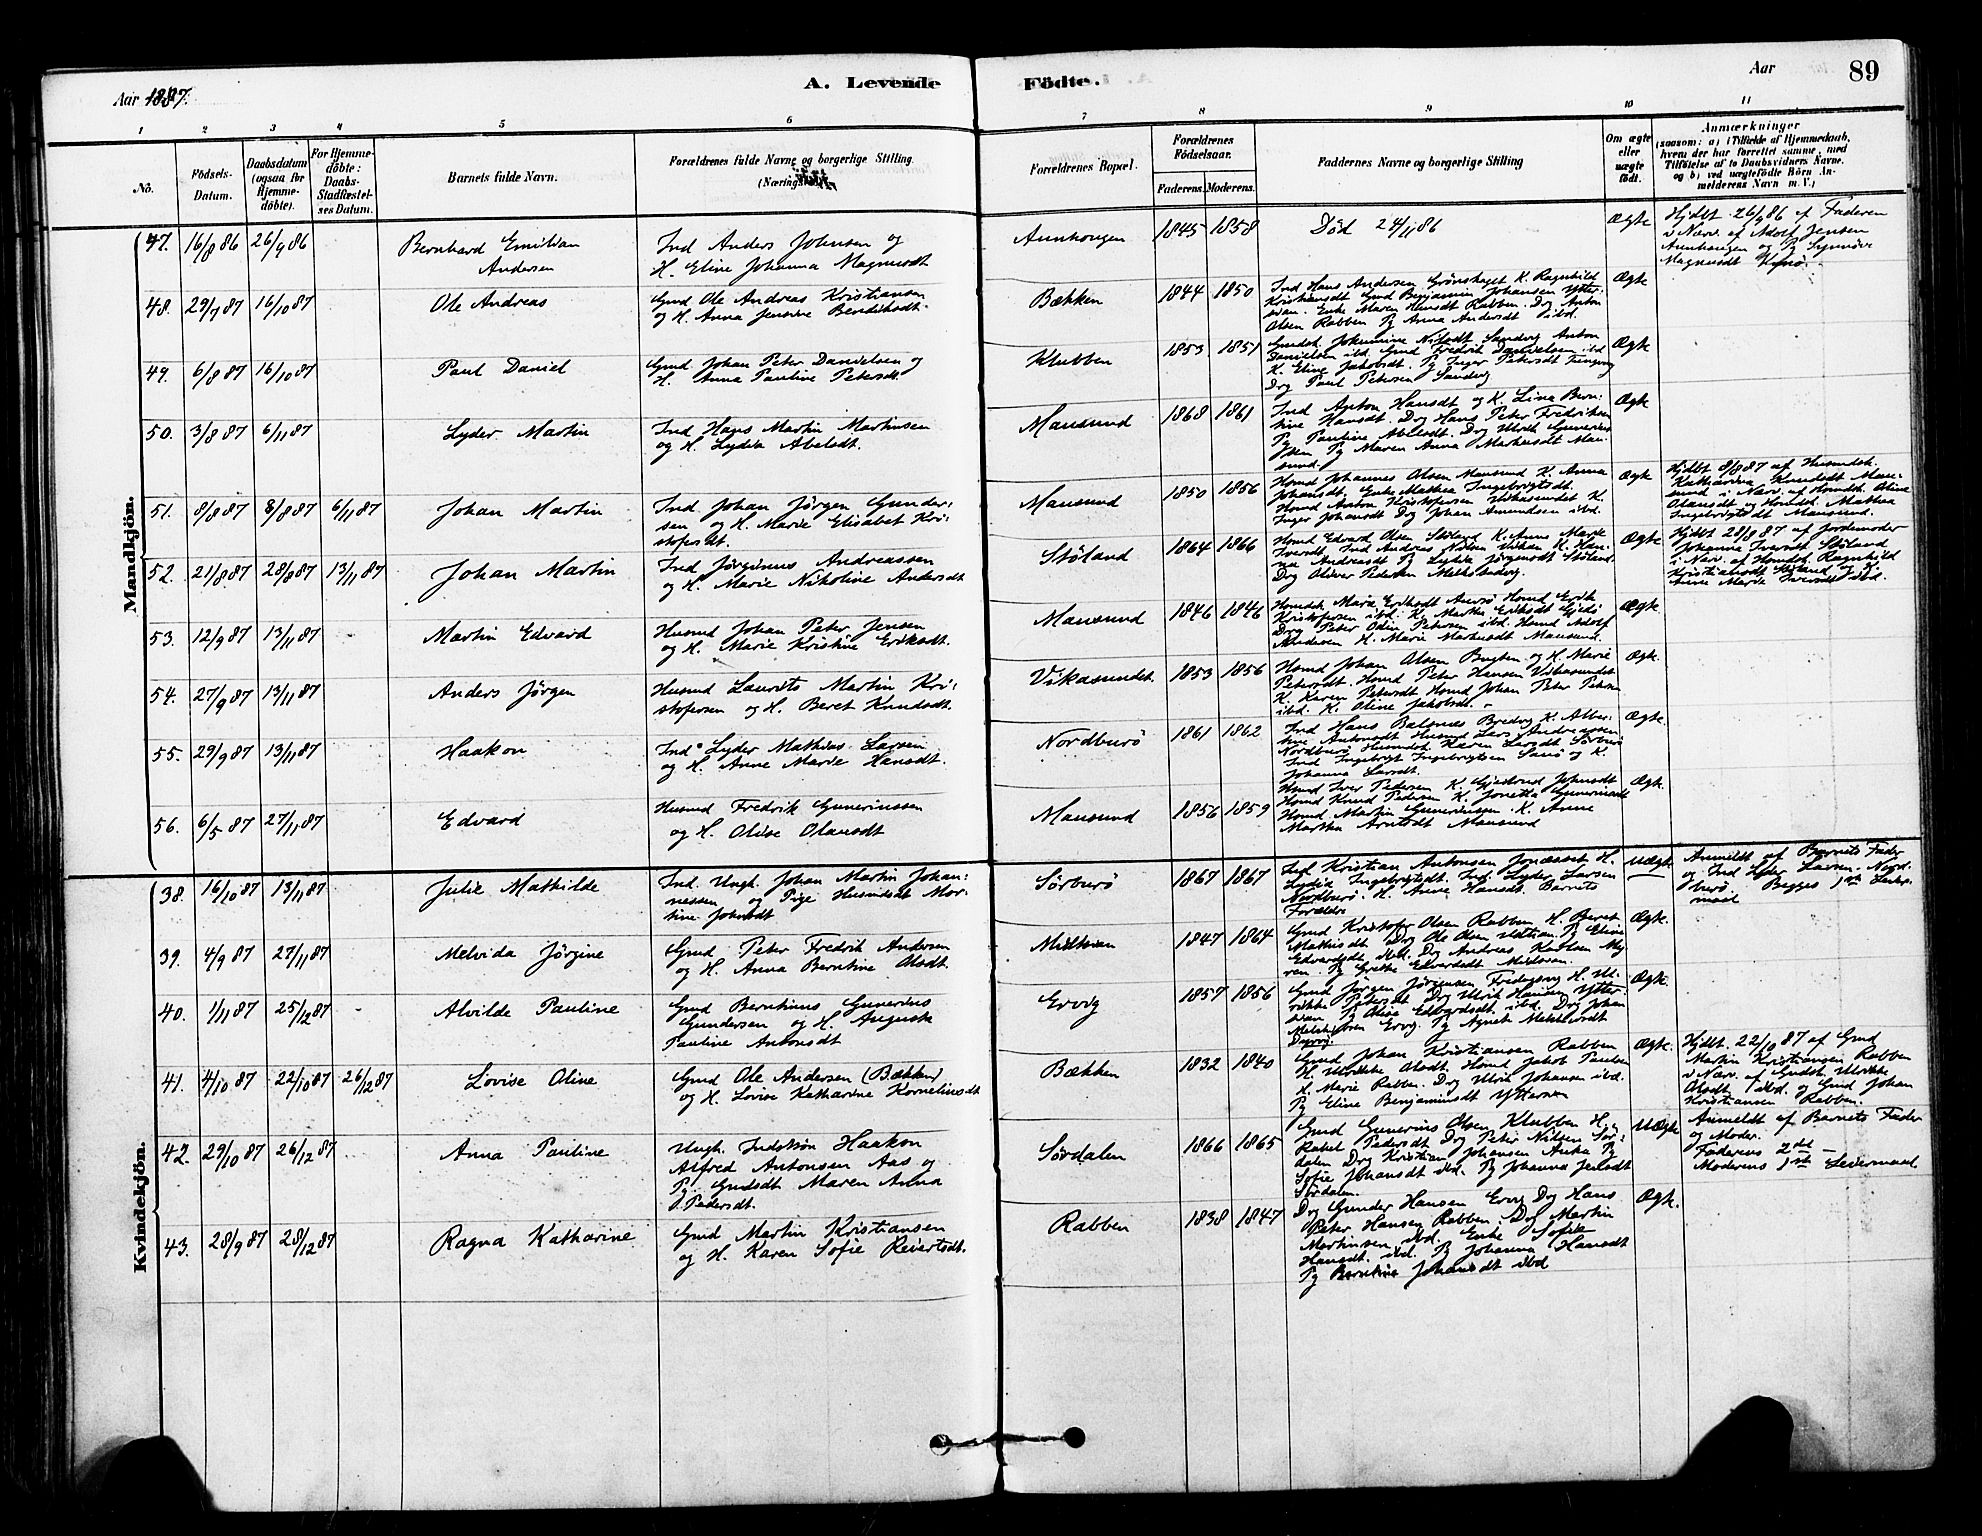 Aar 1887.
A. Levende
Födte.
Aar
89
1 2 3 4 5 6 7 8 9 10 11
No.
Födsels-
Datum.
Daabsdatum
(ogsaa for
Hjemme-
döbte).
For Hjemme-
döbte:
Daabs-
Stadfæstel-
ses Datum.
Barnets fulde Navn.
Forældrenes fulde Navne og borgerlige Stilling.
Forældrenes Bopæl.
Forældrenes
Födselsaar.
Faderens. Moderens.
Faddernes Navne og borgerlige Stilling
Om ægte
eller
uægte
födt.
Anmærkninger
(saasom: a) i Tilfælde af Hjemmedaab,
hvem der har forrettet samme, med
Tilföielse af to Daabsvidners Navne,
og b) ved uægtefödte Börn An-
melderens Navn m. V.)
Mandkjön.
47. 16/8 86 26/9 86
Bernhard Emilian
Andersen
Ind Anders Johnsen og
H. Eline Johanna Magnusdt
Aunhougen
1845 1858
Död 24/11 86
Ægte
Hjdbt. 26/9 86 af Faderen
i Nærv. af Adolf Jensen
Aunhaugen og Pg Synnöve
Magnusdt
48. 29/7 87 16/10 87
Ole Andreas
Gmd Ole Andreas Kristiansen
og H. Anna Jensine Bendiksdt.
Bækken
1844 1850
Ind Hans Andersen Grönskaget K. Ragnhild
Kristiansdt Gmd Benjamin Johansen Ytter-
svan. Enke Maren Hansdt Rabben. Drg Anton
Olsen Rabben Pg Anna Andersdt ibd.
Ægte
49. 6/8 87 16/10 87
Paul Daniel
Gmd Johan Peter Danielsen og
H. Anna Pauline Petersdt.
Klubben
1853 1851
Danielsen ibd. Gmd Fredrik Danielsen ibd
K. Eline Jakobsdt. Pg Inger Petersdt
Drg Paul Petersen Sandvig
Ægte
50. 3/8 87 6/11 87
Lyder Martin
Ind Hans Martin Martinsen
og H. Lydia Abelsdt.
Mausund
1868 1861
Ind Anton Hansdt og K. Lina Bern-
tine Hansdt. Drg Hans Peter Fredriksen
Pg Pauline Abelsdt. Drg Ulrik Gunerius
Pg Maren Anna Markusdt Mau-
sund.
Ægte
51. 8/8 87 8/8 87 6/11 87
Johan Martin
Ind Johan Jörgen Gunder-
sen og H. Marie Elisabet Kri-
stofersdt.
Mausund
1850 1856
Hsmd Johannes Olsen Mausund K. Anna
Johansdt, Enke Mathea Ingebrigtsdt.
Hsmd Anton Kristofersen Vikasundet K.
Inger Johansdt Drg Johan Amundsen ibd.
Ægte
Hjdbt 8/8 87 af Husmdsk.
Katharina Knudsdt Mau-
sund i Nærv. af Hsmdsk Oline
Olausdt og Hsmdsk Mathea
Ingebrigtsdt Mausund.
52. 21/8 87 28/8 87 13/11 87
Johan Martin
Ind Jörginus Andreassen
og H. Marie Nikoline Andersdt
Stöland
1864 1866
Hsmd Edvard Olsen Stöland K. Anne Marie
Iversdt. Ind Andreas Nilsen Vikan K. Han-
na Andreasdt Pg Lydia Jörgensdt Stöland
Drg Oliver Pedersen
Ægte
Hjdbt 28/8 87 af Jordemoder
Johanna Iversdt Stöland
i Nærv. af Hsmdsk. Ragnhild
Kristiansdt Stöland og K.
Anne Marie Iversdt ibd.
53. 12/9 87 13/11 87
Martin Edvard
Husmd Johan Peter Jensen
og H. Marie Kristine Eriksdt.
Mausund
1846 1846
Hsmdsk. Marie Eriksdt Hsmd Erik
Kristofersen ibd. K. Martha Eriksdt
Drg Peter Odin Petersen ibd. Hsmd Adolf
Andersen H. Marie Markusdt Mausund.
Ægte
54. 27/9 87 13/11 87
Anders Jörgen
Husmd Laurits Martin Kri-
stofersen og H. Beret Knudsdt.
Vikasundet
1853 1856
Hsmd Johan Olsen Bugten og H. Marie
Petersdt. Hsmd Peter Hansen Vikasundet
K. Karen Petersdt Hsmd Johan Peter Peters
ibd. K. Oline Jakobsdt.
Ægte.
55. 29/9 87 13/11 87
Haakon
Ind Lyder Mathias Larsen
og H. Anne Marie Hansdt.
Nordburö
1861 1862
Ind Hans Balsnes Bredvg K. Alber-
tine Antonsdt Husmd Lars Andreassen
Nordburö Husmdsk Karen Larsdt Sörburö
Ind Ingebrigt Ingebrigtsen Sanö og K.
Johanna Larsdt.
Ægte.
56. 6/5 87 27/11 87
Edvard
Husmd Fredrik Gunerinssen
og H. Olise Olausdt
Mausund
1856 1859
Hsmd Iver Pedersen K. Gjertrud Johnsdt
Hsmd Knud Pedersen K. Jonetta Gunerinsdt
Hsmd Martin Gunerinssen. K. Anne
Martha Arntsdt Mausund
Ægte.
Kvindekjön.
38. 16/10 87 13/11 87
Julie Mathilde
Ind. Ungk. Johan Martin Johan-
nessen og Pige Husmdsdt Mar-
tine Johnsdt
Sörburö
1867 1867
Ind Kristian Antonsen Jonasset H.
Lydia Ingebrigtsdt. Ind Lyder Larsen
Nordburö. H. Anne Hansdt. Barnets
Forældre
Uægte
Anmeldt af Barnets Fader
og Ind Lyder Larsen. Nord-
burö. Begges 1ste Leier-
maal
39. 4/9 87 27/11 87
Melvida Jörgine
Gmd Peter Fredrik Andersen
og H. Anna Berntine Olsdt.
Midtsian
1847 1864
Gmd Kristofer Olsen Rabben H. Beret
Mathisdt Drg Ole Olsen Pg Eline
Edvardsdt ibd. Drg Andreas Karlsen My-
ren. Pg Grethe Edvardsdt
Ægte.
40. 1/11 87 25/12 87
Alvilde Pauline
Gmd Berntinus Gunerius
Gundersen og H. Augusta
Pauline Antonsdt
Ervig
1857 1856
Gmd Jörgen Jörgensen H. Ul-
rikke Pedersdt Drg Ulrik Hansen Ytter-
svan Pg Olise Edvardsdt. ibd. Drg Johan
Melchiorsen Ervg. Pg Agnet Melchiorsdt
Ægte.
41. 4/10 87 22/10 87 26/12 87
Lovise Oline
Gmd Ole Andersen (Bækken)
og H. Lovise Katharine Korneliusdt
Bækken
1832 1840
Gmd Johan Kristiansen Rabben
H. Ulrikke Olsdt Hsmd Jakob Paulsen
H. Marie Rabben. Drg Ulrik Johansen ibd.
Pg Eline Benjaminsdt Yttersvan
Ægte.
Hjdbt. 22/10 87 af Gmd
Martin Kristiansen Rabben
i Nærv. af Gmdsk Ulrikke
Olsdt ibd. og Gmd Johan
Kristiansen Rabben.
42. 29/10 87 26/12 87
Anna Pauline
Ungk. Indstsön Haakon
Alfred Antonsen Aas og
Pg. Gmdsdt Maren Anna
Pedersdt.
Sördalen
1866 1865
Gmd Gunerius Olsen Klubben H.
Rakel Pedersdt Drg Peter Nilsen Sör-
dalen Drg Kristian Johansen Pg
Sofie Johansdt ibd. Pg Johanna Jensdt
Sördalen.
Uægte
Anmeldt af Barnets Fader
og Moder.
Faderens 2det –
Moderens 1ste Leiermaal
43. 28/9 87 28/12 87
Ragna Katharine
Gmd Martin Kristiansen
og H. Karen Sofie Reiersdt.
Rabben
1838 1847
Drg Gunder Hansen Ervg Drg Hans
Peter Hansen Rabben, Drg Martin
Martinsen ibd. Enke Sofie
Hansdt. ibd. Pg Johanna Hansdt
Pg Berntine Johansdt ibd
Ægte.